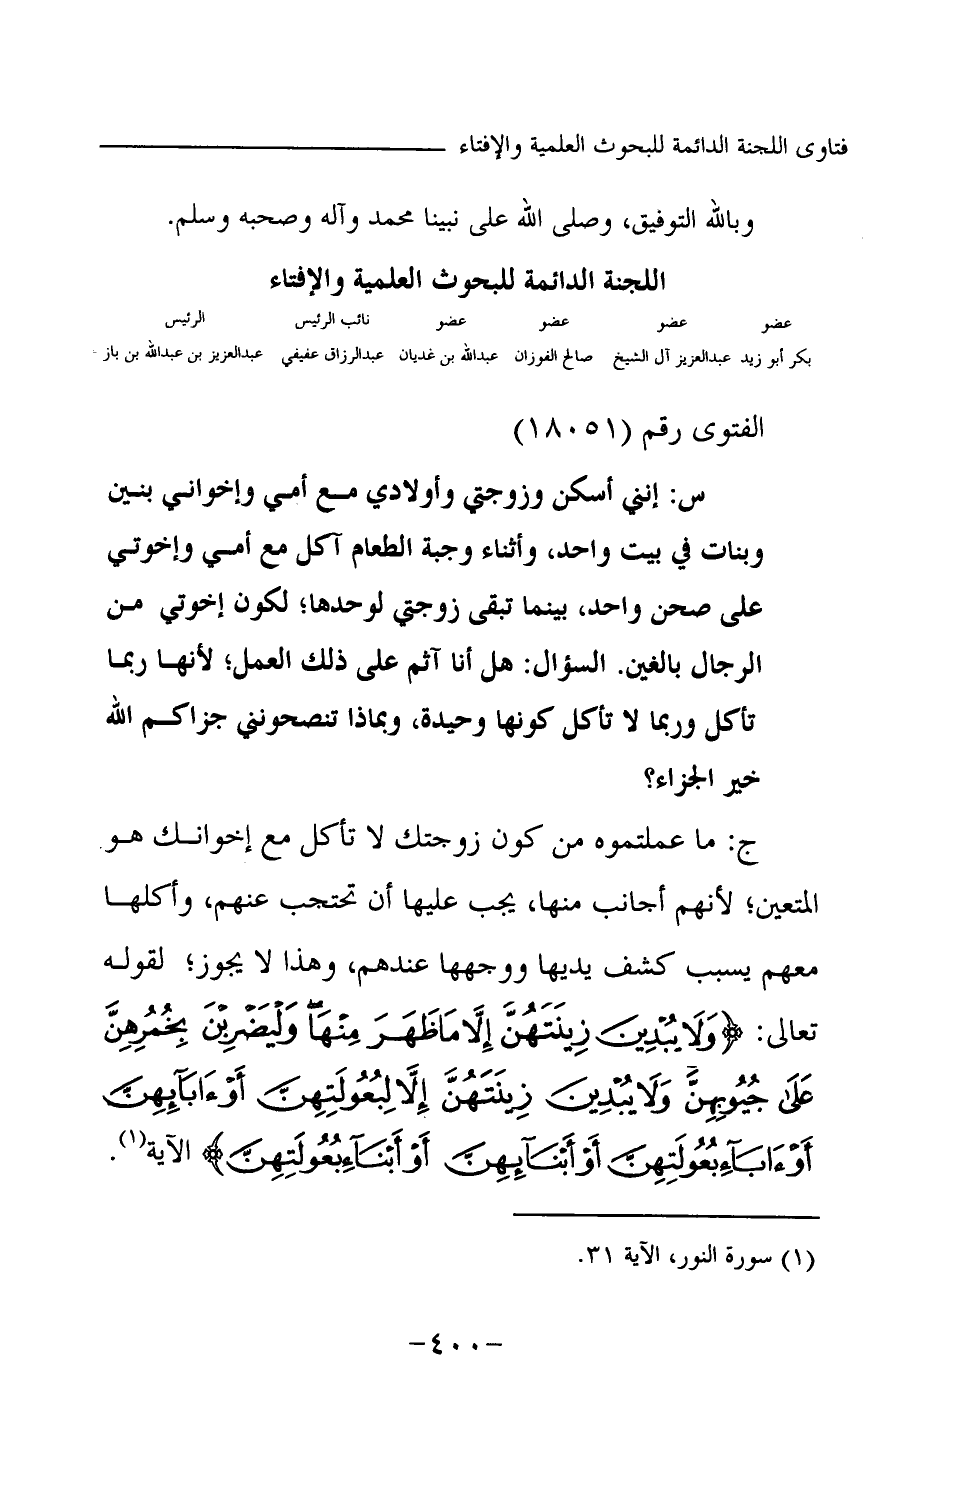 فتاوى اللجنة الدائمة للبحوث العلمية والإفتاء
وبالله التوفيق، وصلى الله على نبينا محمد وآله وصحبه وسلم.
اللجنة الدائمة للبحوث العلمية والإفتاء
عضو عضو عضو عضو نائب الرئيس الرئيس
بكر أبو زيد عبدالعزيز آل الشيخ صالح الفوزان عبدالله بن غديان عبدالرزاق عفيفي عبدالعزيز بن عبدالله بن باز
الفتوى رقم (١٨٠٥١)
س: إنني أسكن وزوجتي وأولادي مع أمي وإخواني بنين
وبنات في بيت واحد، وأثناء وجبة الطعام آكل مع أمي وإخوتي
على صحن واحد، بينما تبقى زوجتي لوحدها؛ لكون إخوتي من
الرجال بالغين. السؤال: هل أنا آثم على ذلك العمل؛ لأنها ربما
تأكل وربما لا تأكل كونها وحيدة، وبماذا تنصحونني جزاكم الله
خير الجزاء؟
ج: ما عملتموه من كون زوجتك لا تأكل مع إخوانك هو
المتعين؛ لأنهم أجانب منها، يجب عليها أن تحتجب عنهم، وأكلها
معهم يسبب كشف يديها ووجهها عندهم، وهذا لا يجوز؛ لقوله
تعالى: ﴿وَلَا يُبْدِينَ زِينَتَهُنَّ إِلَّا مَا ظَهَرَ مِنْهَا وَلْيَضْرِبْنَ بِخُمُرِهِنَّ
عَلَى جُيُوبِهِنَّ وَلَا يُبْدِينَ زِينَتَهُنَّ إِلَّا لِبُعُولَتِهِنَّ أَوْ ءَابَآئِهِنَّ
أَوْ ءَابَآءِ بُعُولَتِهِنَّ أَوْ أَبْنَآئِهِنَّ أَوْ أَبْنَآءِ بُعُولَتِهِنَّ﴾ الآية(١).
(١) سورة النور، الآية ٣١.
-٤٠٠-